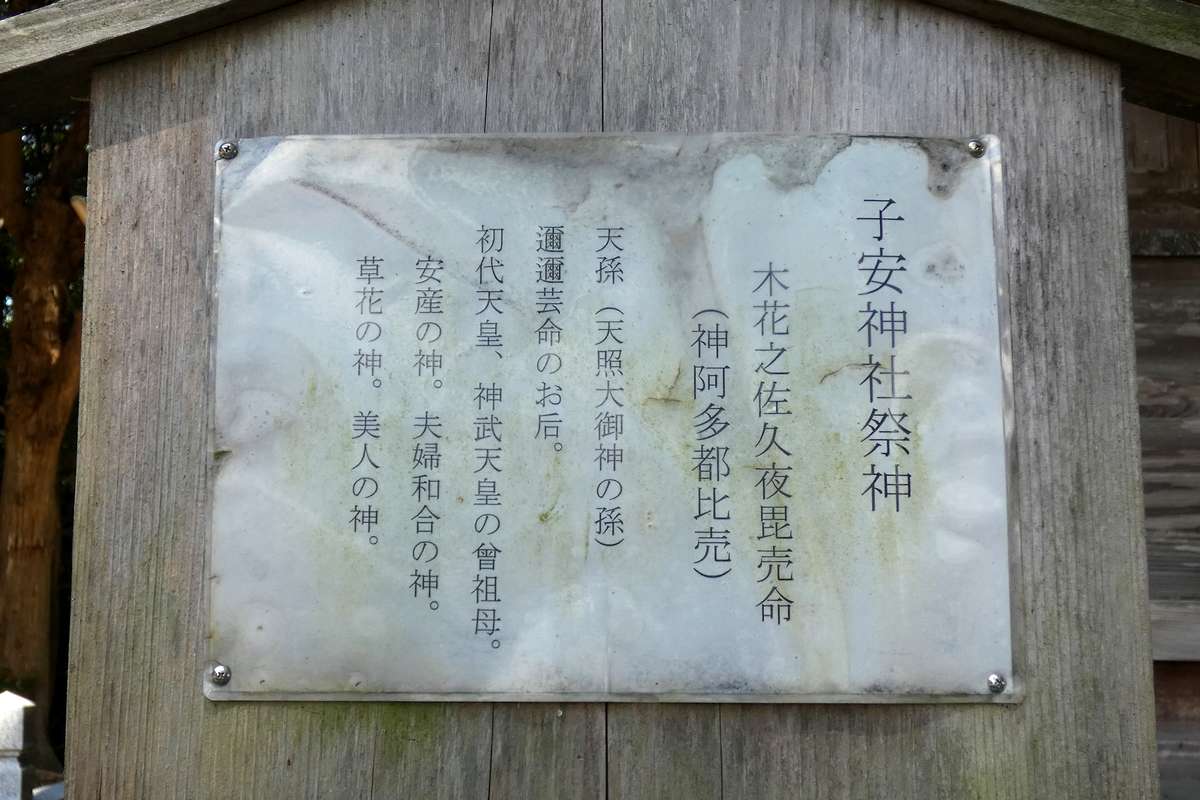 子安神社祭神
木花之佐久夜毘売命
（神阿多都比売）
天孫（天照大御神の孫）
邇邇芸命のお后。
初代天皇、神武天皇の曾祖母。
安産の神。夫婦和合の神。
草花の神。美人の神。